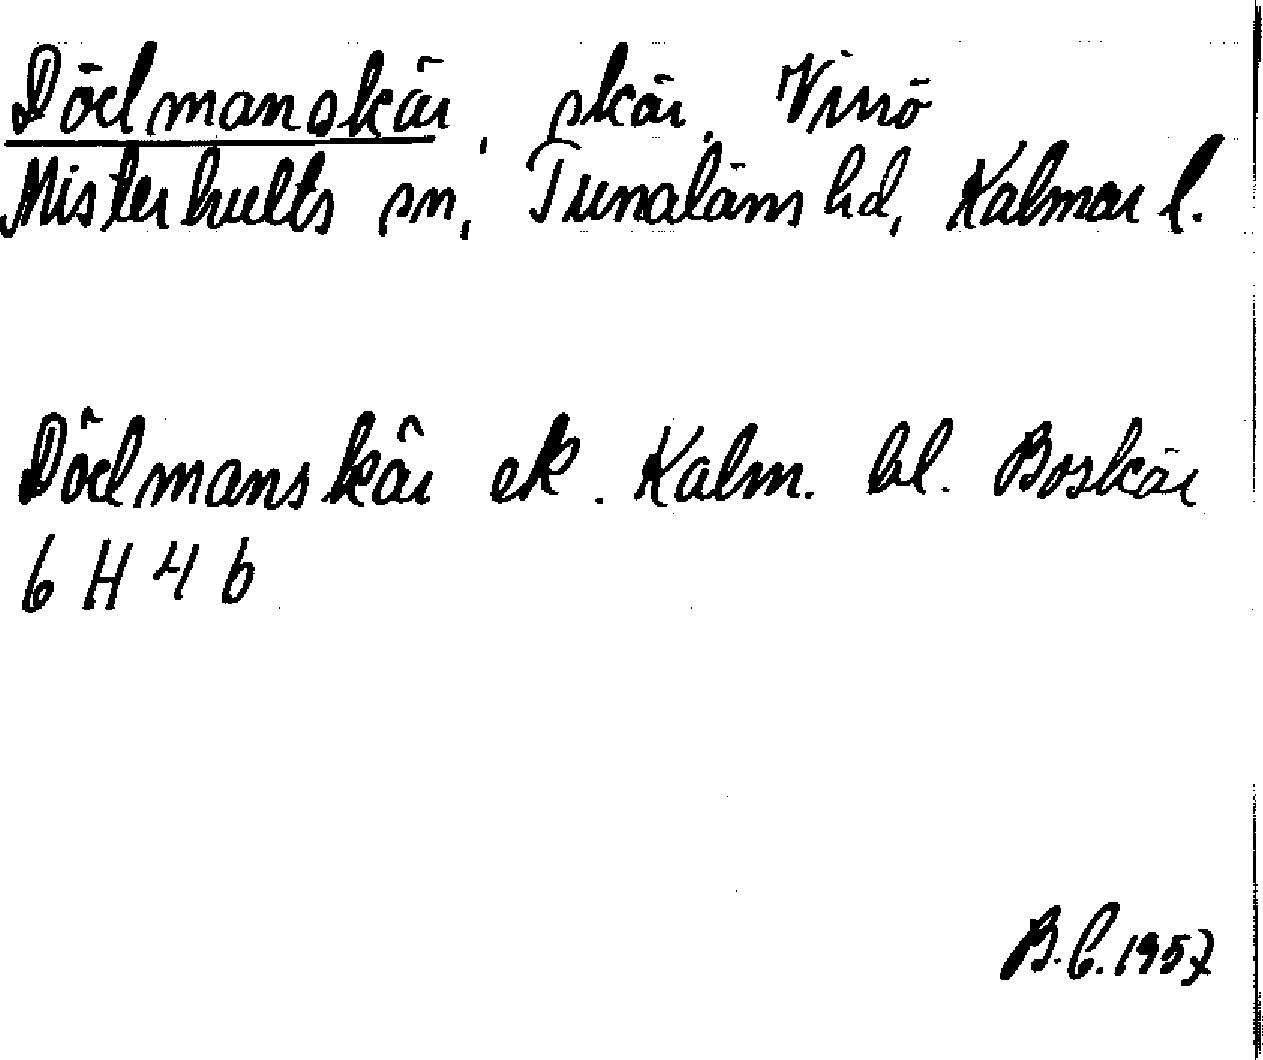 Dödmanskär, skär, Vinö
Misterhults sn, Tunaläns hd, Kalmar l.
Dödmanskär ek. Kalm. bl. Boskär
6 H 4 b
B.C. 1957